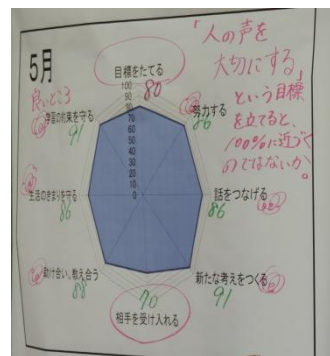 5月
「人の声を
大切にする」
という目標
を立てると、
100%に近づく
のではないか。
目標をたてる
80
努力する
86
話をつなげる
86
新たな考えをつくる
91
相手を受け入れる
70
助け合い、教え合う
88
生活のきまりを守る
86
良いところ
学習の約束を守る
91
100
90
80
70
60
50
40
30
20
10
0